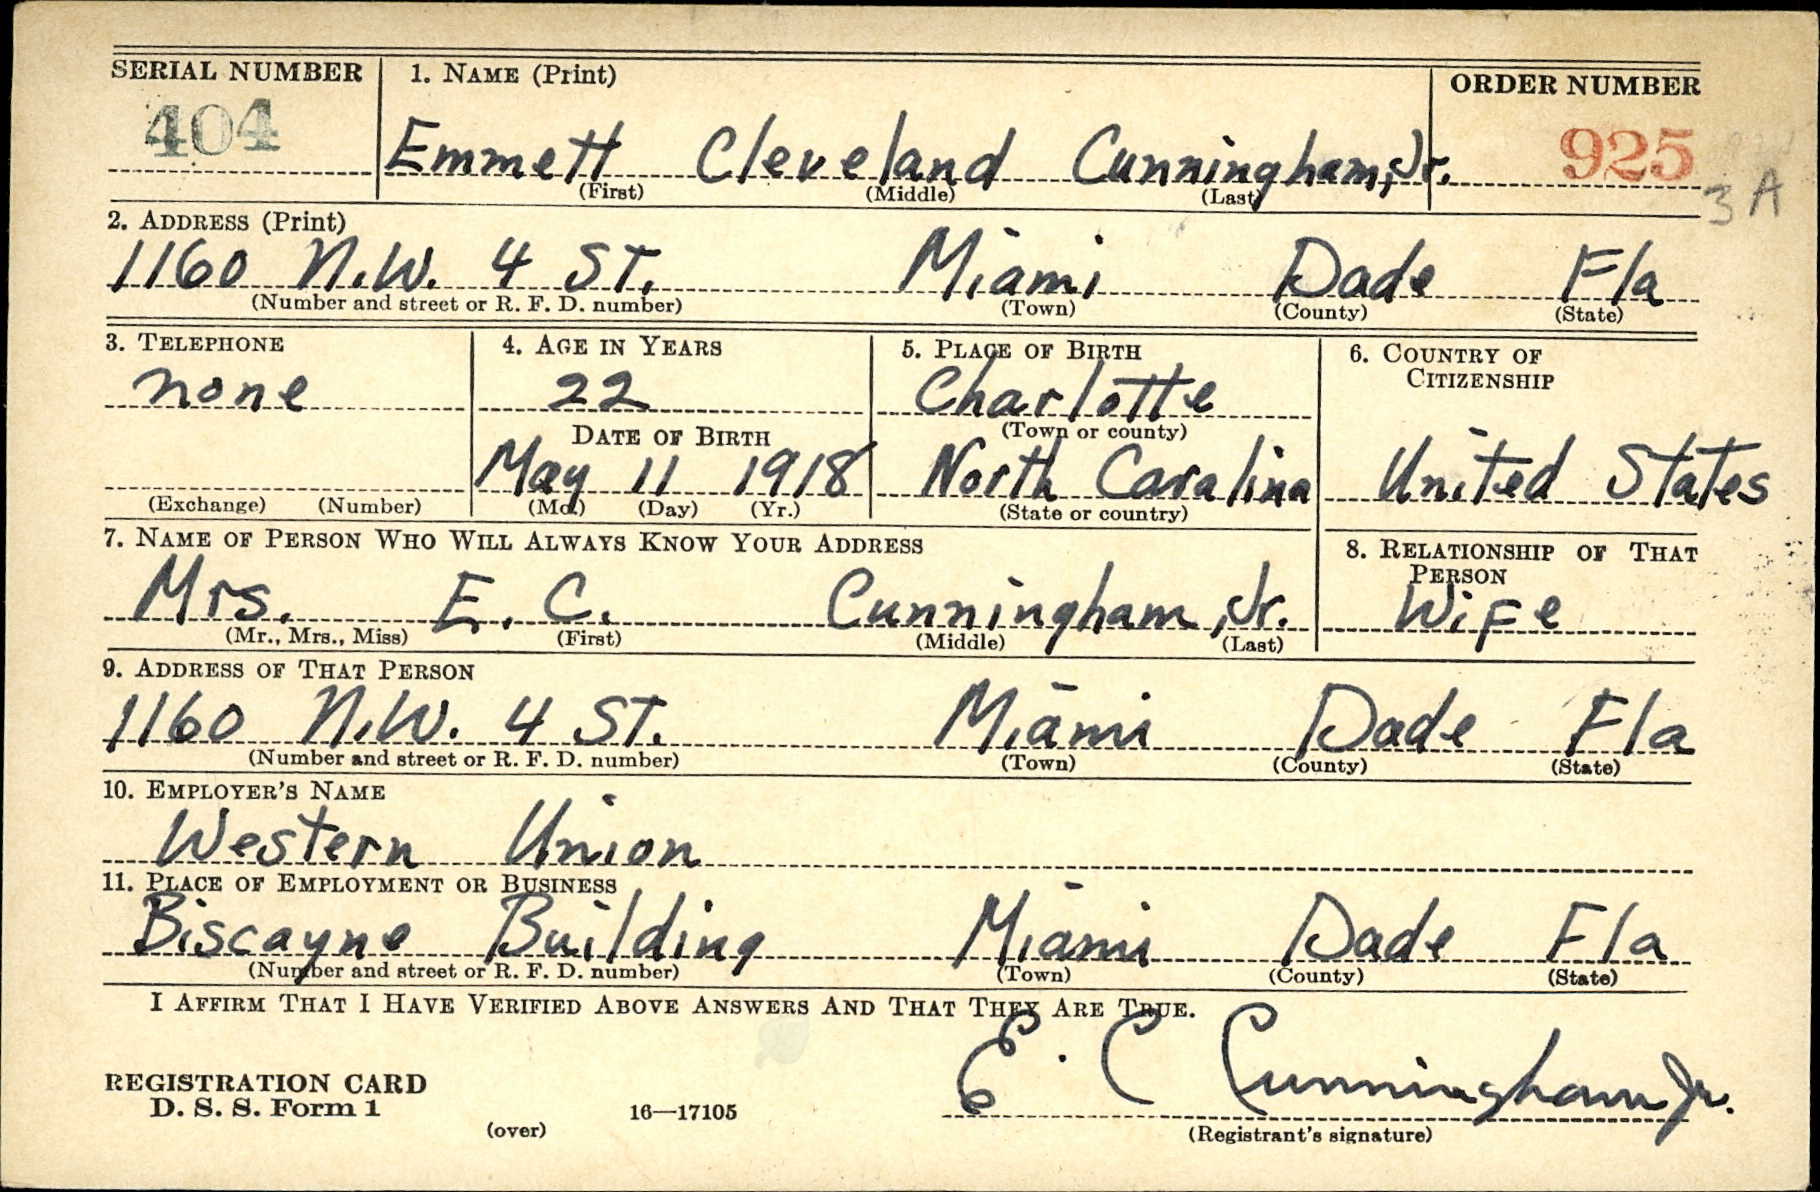 SERIAL NUMBER 1. NAME (Print) ORDER NUMBER
404 Emmett Cleveland Cunningham, Jr. 925
(First) (Middle) (Last) 3 A
2. ADDRESS (Print)
1160 N.W. 4 ST. Miami Dade Fla
(Number and street or R. F. D. number) (Town) (County) (State)
3. TELEPHONE 4. AGE IN YEARS 5. PLACE OF BIRTH 6. COUNTRY OF CITIZENSHIP
none 22 Charlotte
DATE OF BIRTH (Town or county)
May 11 1918 North Caralina United States
(Exchange) (Number) (Mo.) (Day) (Yr.) (State or country)
7. NAME OF PERSON WHO WILL ALWAYS KNOW YOUR ADDRESS 8. RELATIONSHIP OF THAT PERSON
Mrs. E. C. Cunningham, Jr. Wife
(Mr., Mrs., Miss) (First) (Middle) (Last)
9. ADDRESS OF THAT PERSON
1160 N.W. 4 ST. Miami Dade Fla
(Number and street or R. F. D. number) (Town) (County) (State)
10. EMPLOYER'S NAME
Western Union
11. PLACE OF EMPLOYMENT OR BUSINESS
Biscayne Building Miami Dade Fla
(Number and street or R. F. D. number) (Town) (County) (State)
I AFFIRM THAT I HAVE VERIFIED ABOVE ANSWERS AND THAT THEY ARE TRUE.
E. C Cunningham Jr.
REGISTRATION CARD
D. S. S. Form 1 16—17105
(over) (Registrant's signature)